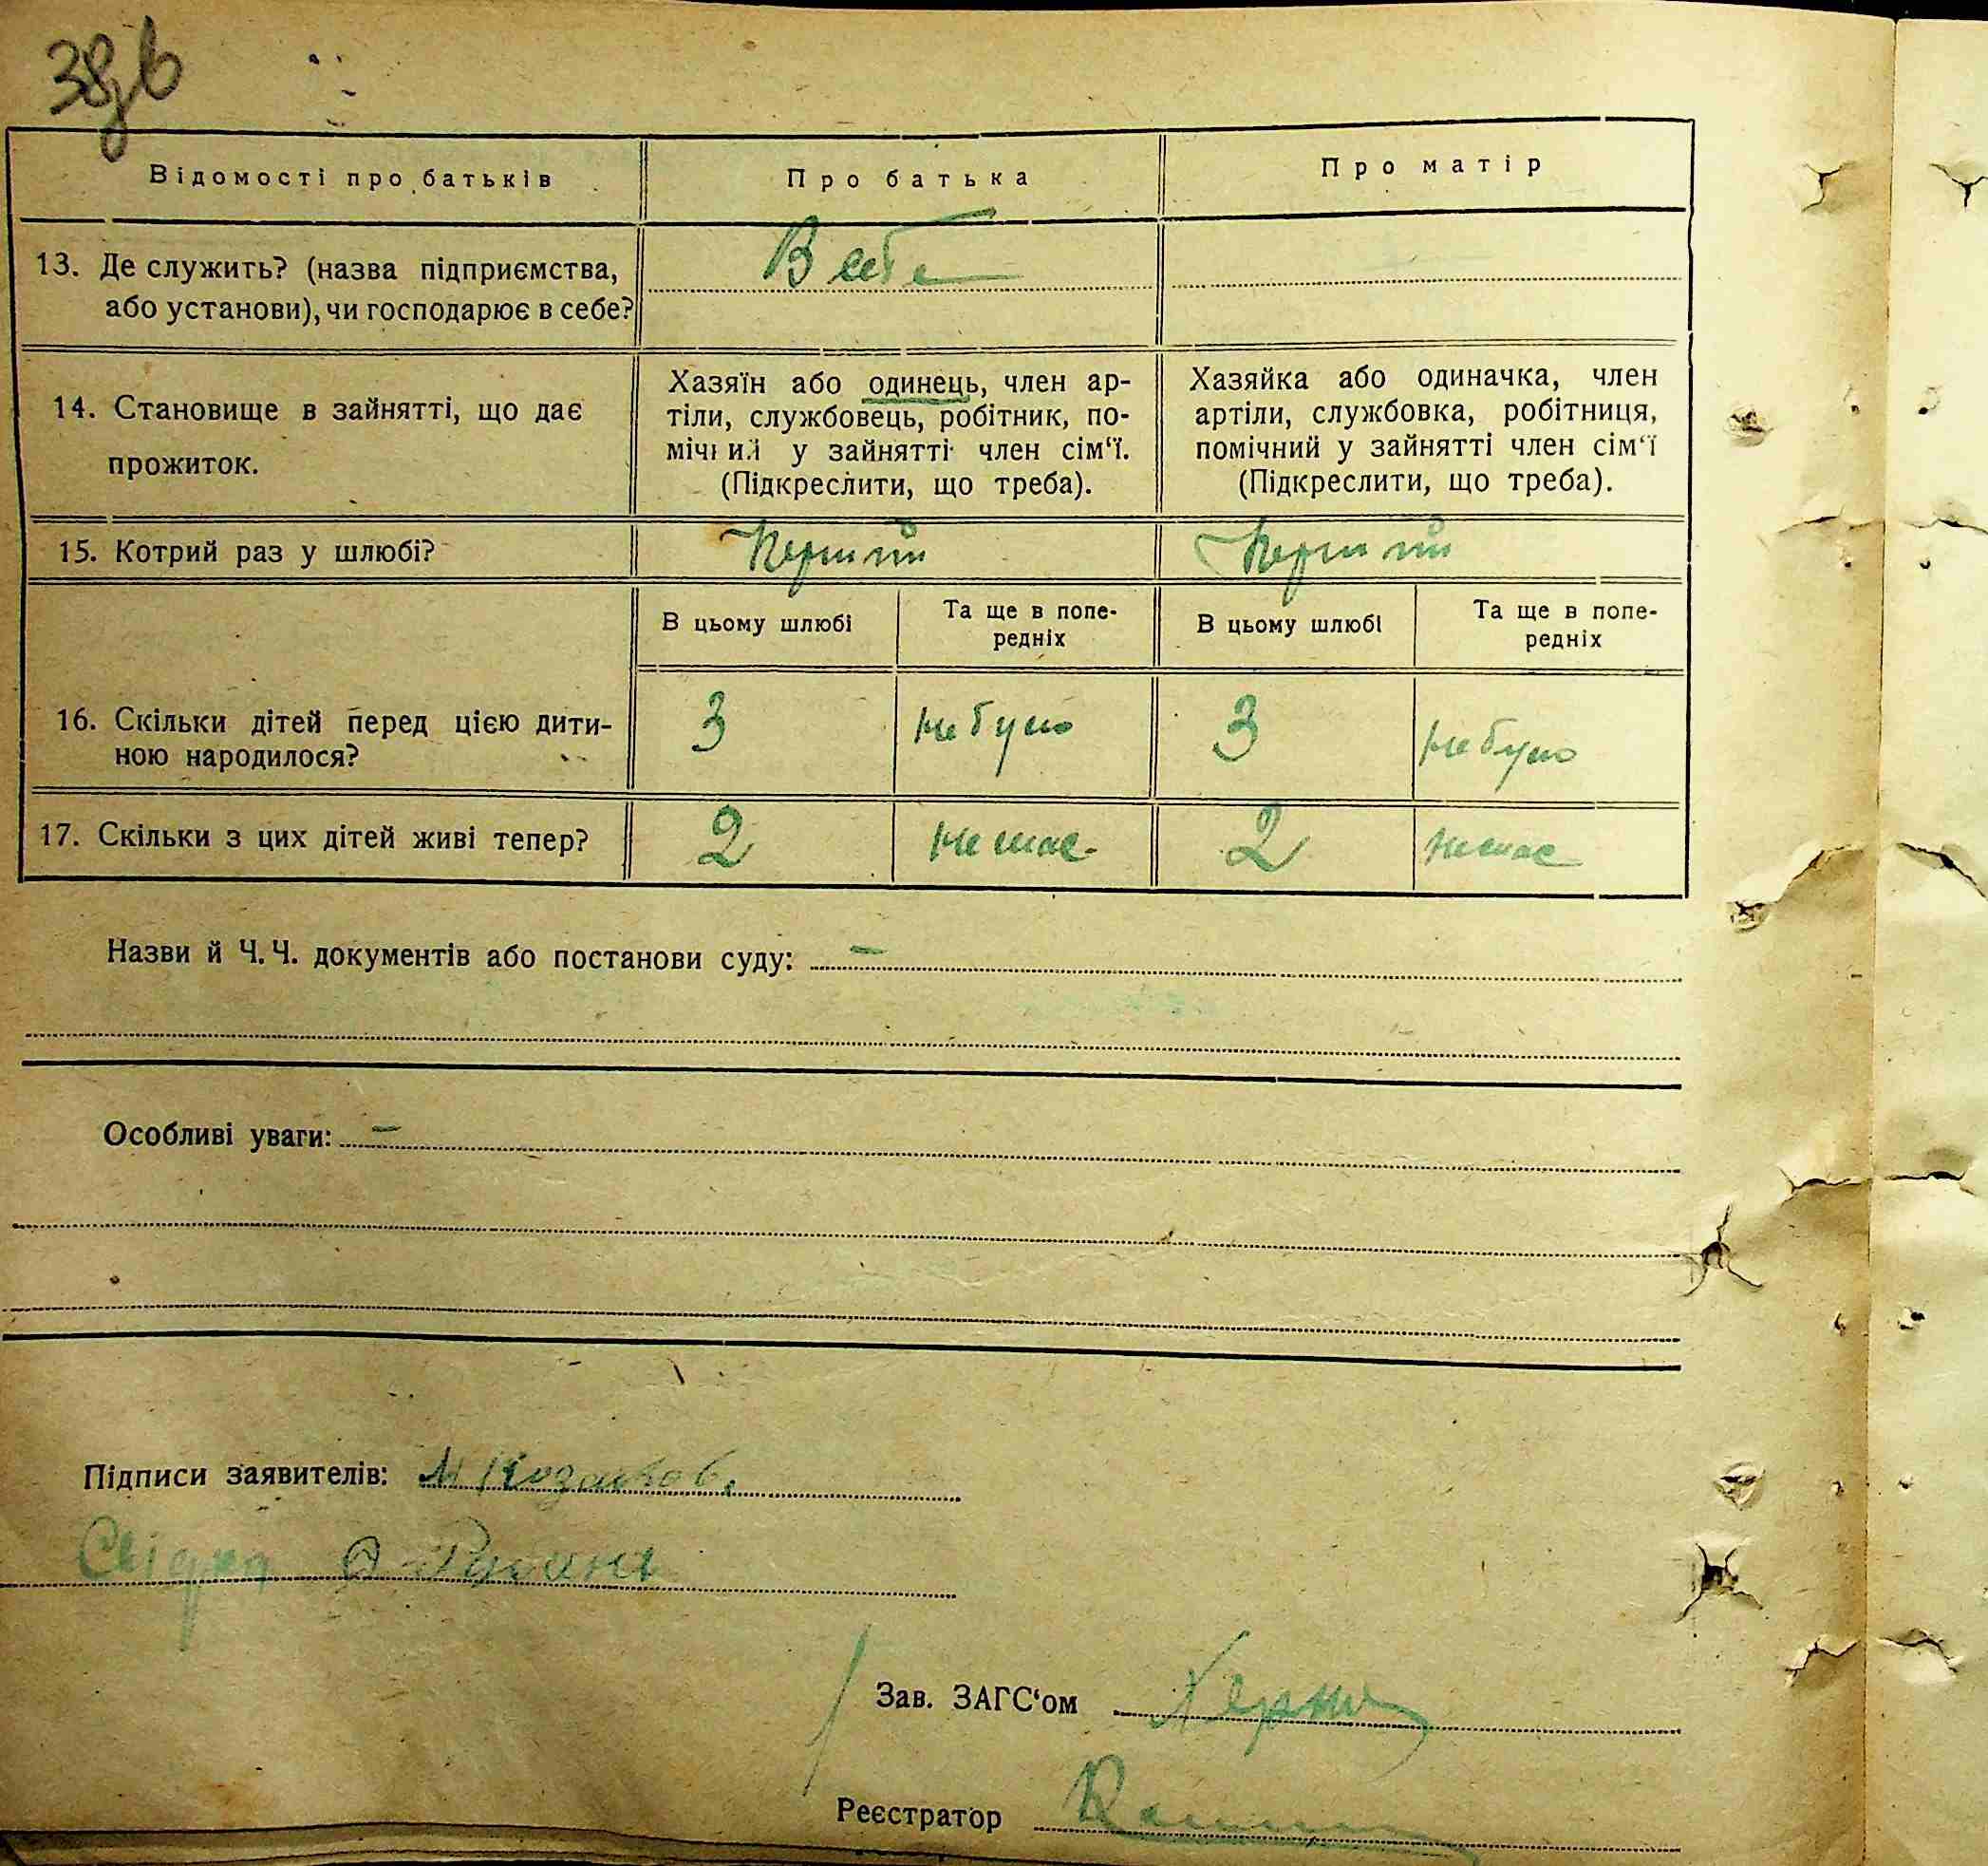 38зв
Відомості про батьків
Про батька
Про матір
13. Де служить? (назва підприємства,
або установи), чи господарює в себе?
В себе
14. Становище в зайнятті, що дає
прожиток.
Хазяїн або одинець, член ар-
тіли, службовець, робітник, по-
мічний у зайнятті член сім‘ї.
(Підкреслити, що треба).
Хазяйка або одиначка, член
артіли, службовка, робітниця,
помічний у зайнятті член сім‘ї
(Підкреслити, що треба).
15. Котрий раз у шлюбі?
Перший
Перший
В цьому шлюбі
Та ще в попе-
редніх
В цьому шлюбі
Та ще в попе-
редніх
16. Скільки дітей перед цією дити-
ною народилося?
3
не було
3
не було
17. Скільки з цих дітей живі тепер?
2
немає
2
немає
Назви й Ч.Ч. документів або постанови суду: —
Особливі уваги: —
Підписи заявителів: М Козаков.
Свідки
Зав. ЗАГС‘ом
Реєстратор